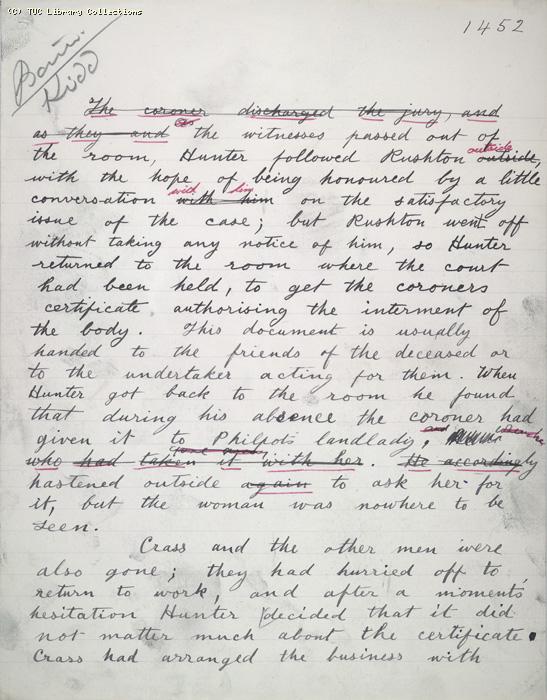 (C) TUC Library Collections
1452
Barrin.
Kidd
The coroner discharged the jury, and
as
as they and the witnesses passed out of
outside
the room, Hunter followed Rushton outside,
with the hope of being honoured by a little
with him
conversation with him on the satisfactory
issue of the case; but Rushton went off
without taking any notice of him, so Hunter
returned to the room where the court
had been held, to get the coroners
certificate authorising the interment of
the body. This document is usually
handed to the friends of the deceased or
to the undertaker acting for them. When
Hunter got back to the room he found
that during his absence the coroner had
given it to Philpot's landlady,
and
who had taken it with her. He accordingly
hastened outside again to ask her for
it, but the woman was nowhere to be
seen.
Crass and the other men were
also gone; they had hurried off to
return to work, and after a moments
hesitation Hunter decided that it did
not matter much about the certificate.
Crass had arranged the business with